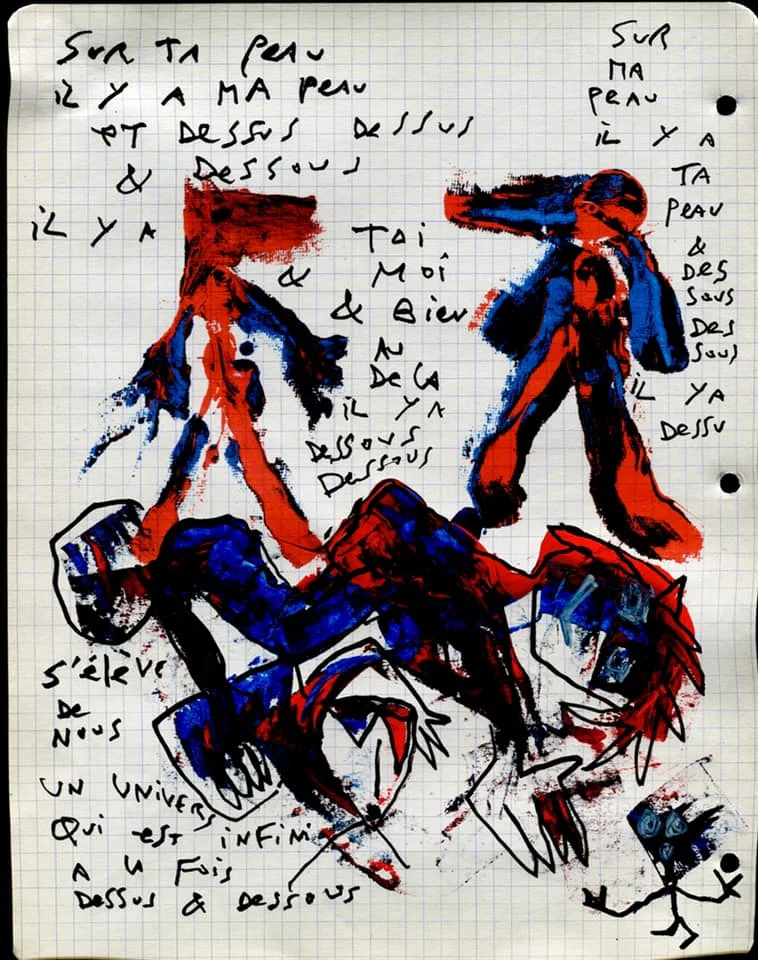 SUR TA PEAU
IL Y A MA PEAU
ET DESSUS DESSUS
& DESSOUS
IL Y A
TOI
& MOI
& BIEN
AU
DELA
IL Y A
DESSOUS
DESSOUS
SUR
MA
PEAU
IL Y A
TA
PEAU
&
DES
SOUS
DES
SOUS
IL YA
DESSU
S'élève
DE
NOUS
UN UNIVERS
QUI EST INFINI
A LA FOIS
DESSUS & DESSOUS